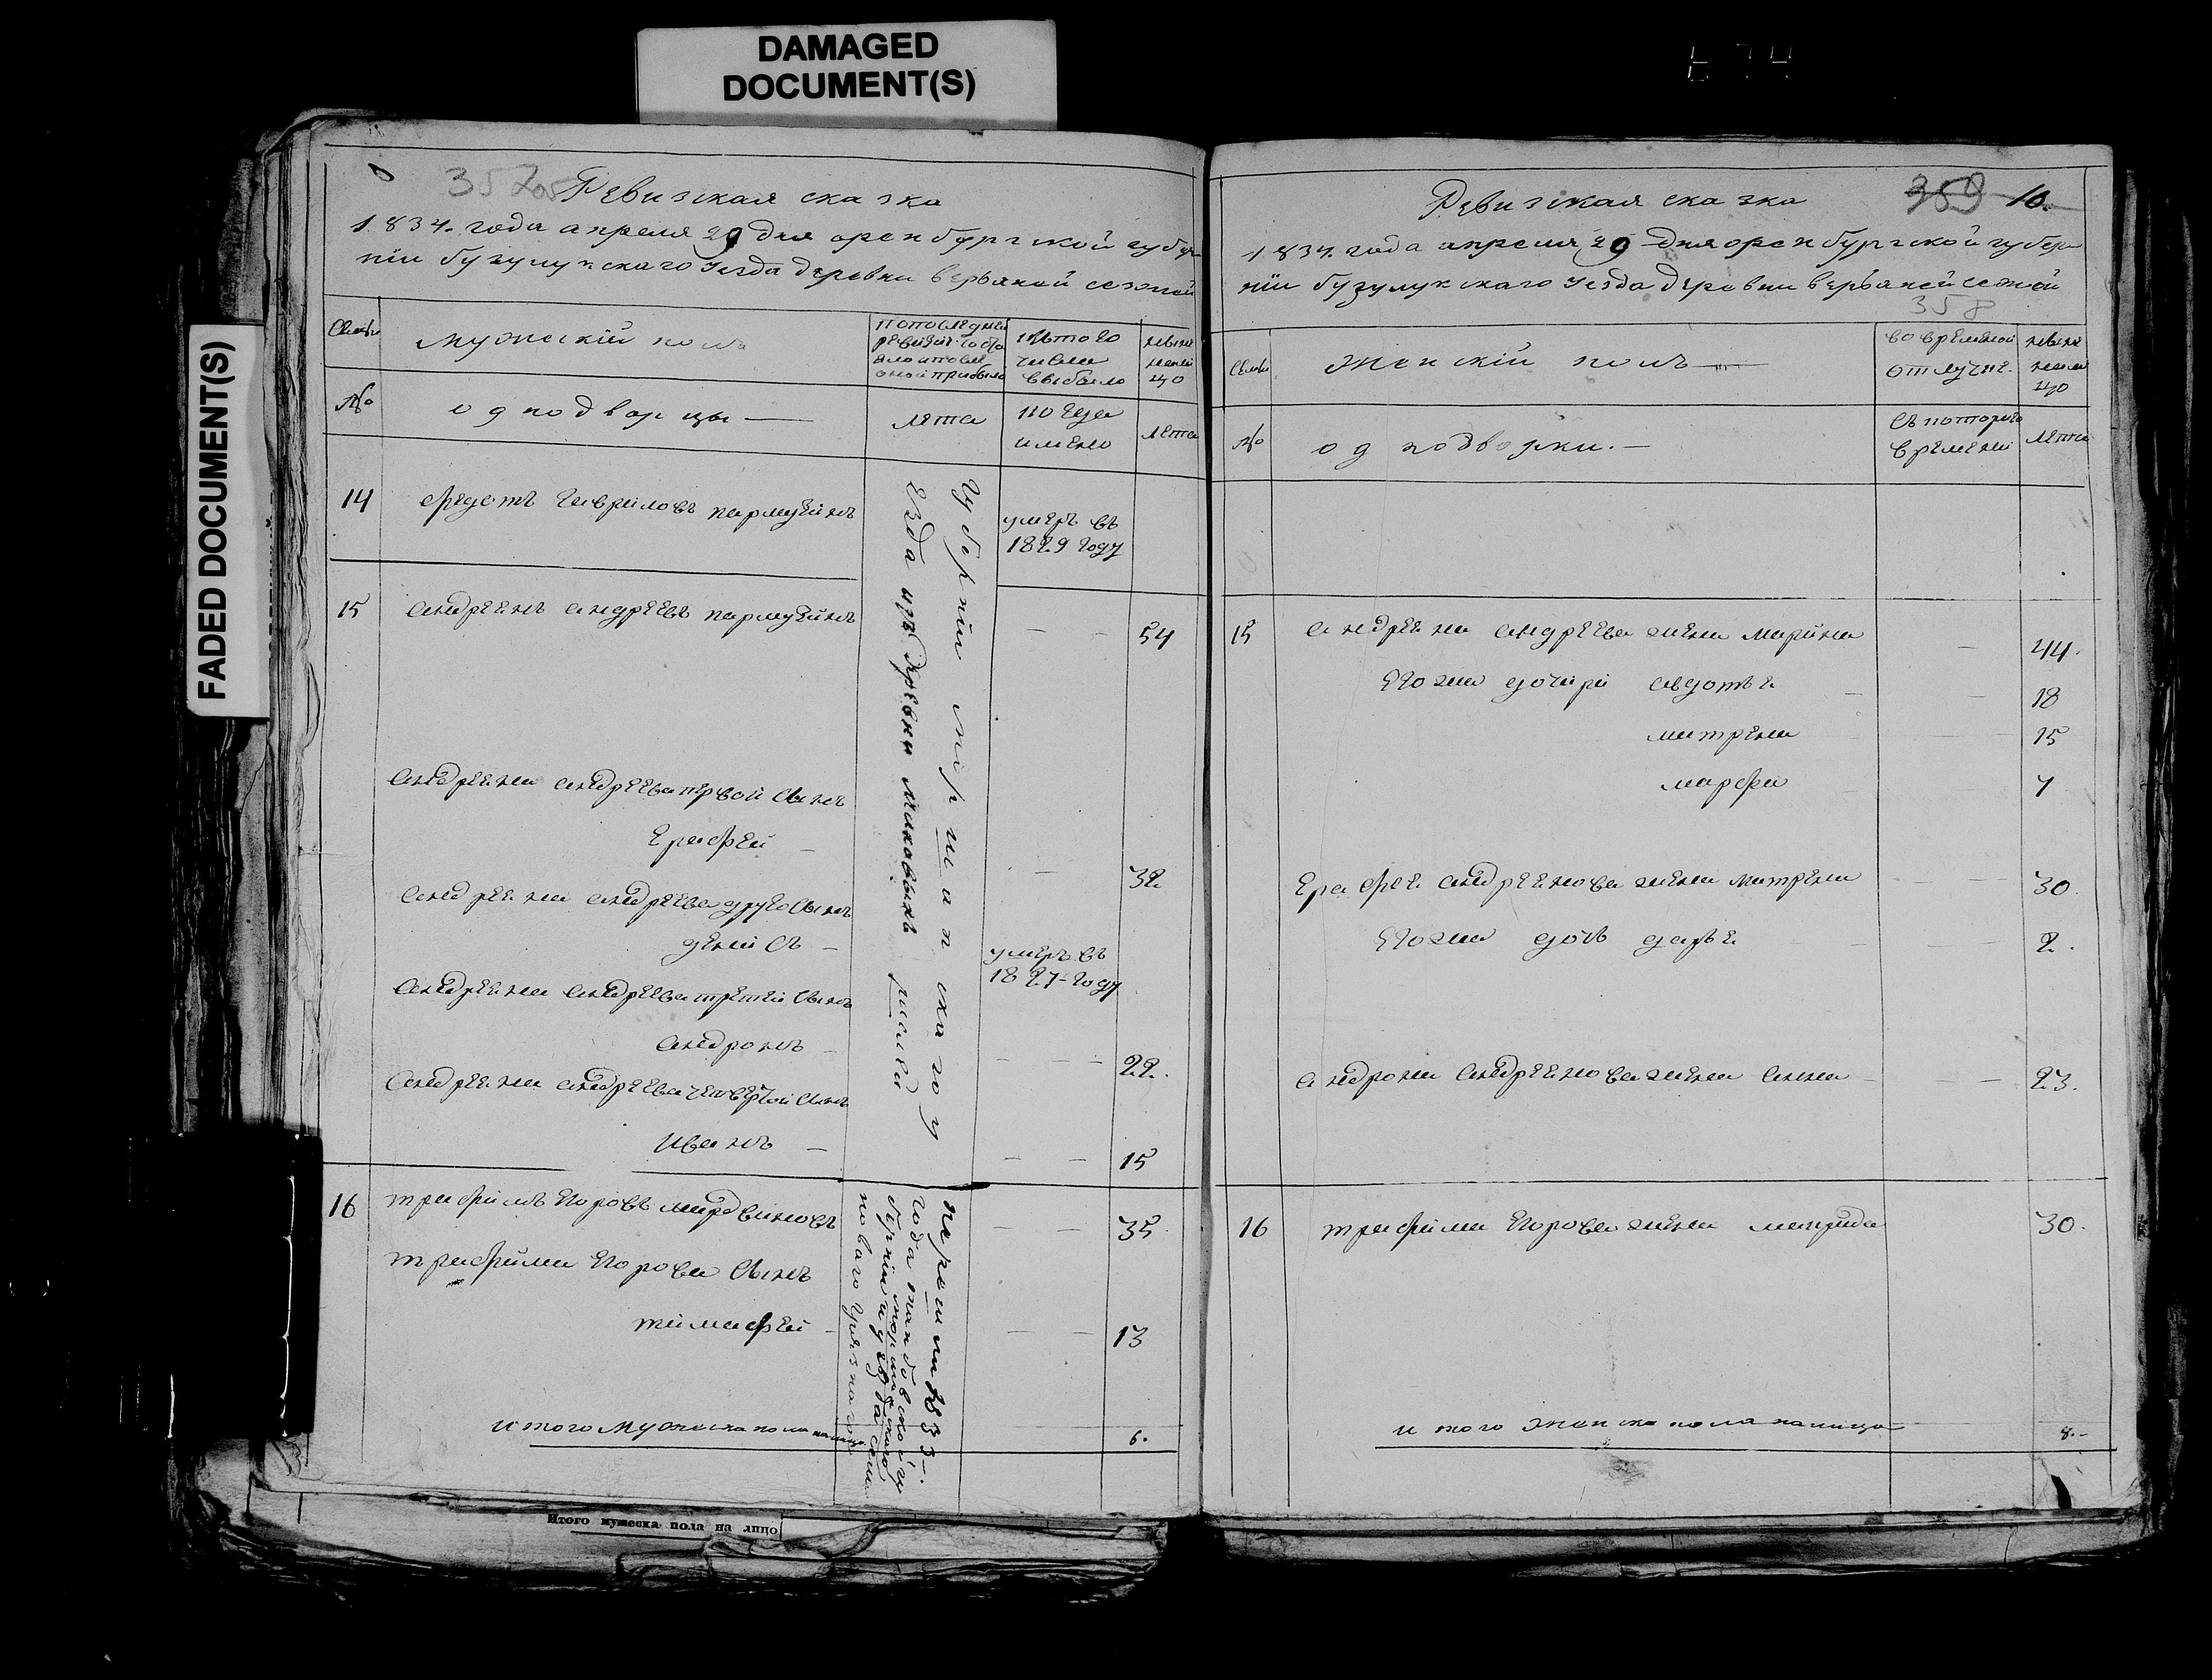 DAMAGED
DOCUMENT(S)
FADED DOCUMENT(S)
357
Ревизская сказка
1834. года апреля 29 дня оренбургской губер
нiи бузулукскаго уезда деревни верьхней сезжей
Семьи
мужескiй полъ
по последней
ревизiи состо
яло и после
оной прибыло
изъ того
числа
выбыло
ныне
нали
цо
№
однодворцы —
лета
когда
имено
лета
14
Федотъ Гавриловъ пармузинъ
умеръ въ
1829 году
15
андреянъ андреевъ пармузинъ
54
андреяна андреева первой сынъ
Ерафей
32
андреяна андреева другой сынъ
денисъ
умеръ въ
1827 году
андреяна андреева третей сынъ
андронъ
22.
андреяна андреева четвертой сынъ
Иванъ
15
губернiи
скаго у
езда изъ деревни
16
трафимъ Егоровъ
35
трафима Егорова сынъ
тимафей
13
1833
года тамбовской гу
бернiи
уезда
итого мужеска пола налицо
6.
Итого мужеска пола на лицо
Ревизская сказка
359 10.
1834. года апреля 29 дня оренбургской губер
нiи бузулукскаго уезда деревни верьхней сезжей
358
Семьи
женскiй полъ —
во временной
отлучке.
ныне
нали
цо
№
однодворки. —
съ которого
времени
лета
15
андреяна андреева жена марина
44.
его жа дочери авдотья
18
матрена
15
марфа
7
Ерафея андреянова жена матрена
30.
его жа дочь дарья
2.
андрона андреянова жена анна
23.
16
трафима Егорова жена
30.
итого женска пола налицо
8.